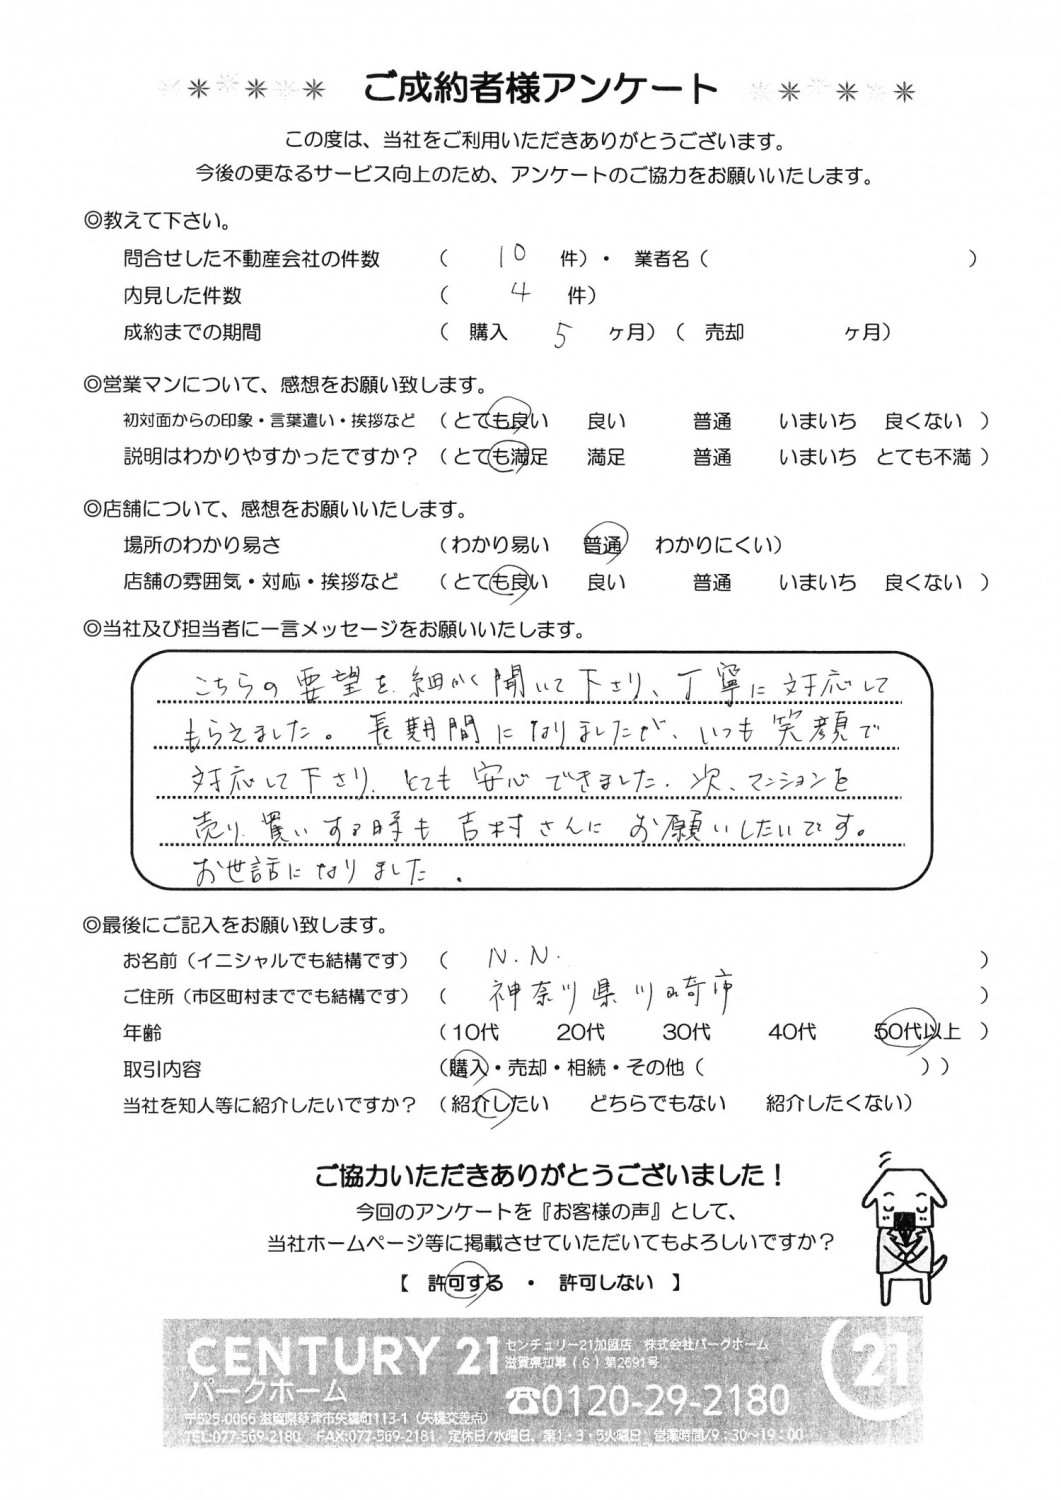 ご成約者様アンケート
この度は、当社をご利用いただきありがとうございます。
今後の更なるサービス向上のため、アンケートのご協力をお願いいたします。
◎教えて下さい。
問合せした不動産会社の件数 ( 10 件)・ 業者名 ( )
内見した件数 ( 4 件)
成約までの期間 ( 購入 5 ヶ月) ( 売却 ヶ月)
◎営業マンについて、感想をお願い致します。
初対面からの印象・言葉遣い・挨拶など (とても良い 良い 普通 いまいち 良くない )
説明はわかりやすかったですか? (とても満足 満足 普通 いまいち とても不満 )
◎店舗について、感想をお願いいたします。
場所のわかり易さ (わかり易い 普通 わかりにくい)
店舗の雰囲気・対応・挨拶など (とても良い 良い 普通 いまいち 良くない )
◎当社及び担当者に一言メッセージをお願いいたします。
こちらの要望を細かく聞いて下さり、丁寧に対応して
もらえました。長期間になりましたが、いつも笑顔で
対応して下さり、とても安心できました。次、マンションを
売り、買いする時も吉村さんにお願いしたいです。
お世話になりました。
◎最後にご記入をお願い致します。
お名前(イニシャルでも結構です) ( N.N. )
ご住所(市区町村まででも結構です) ( 神奈川県川崎市 )
年齢 (10代 20代 30代 40代 50代以上 )
取引内容 (購入・売却・相続・その他( ))
当社を知人等に紹介したいですか? (紹介したい どちらでもない 紹介したくない)
ご協力いただきありがとうございました!
今回のアンケートを『お客様の声』として、
当社ホームページ等に掲載させていただいてもよろしいですか?
【 許可する ・ 許可しない 】
CENTURY 21 センチュリー21加盟店 株式会社パークホーム
滋賀県知事(6)第2691号
パークホーム ☎0120-29-2180 21
〒525-0066 滋賀県草津市矢橋町113-1(矢橋交差点)
TEL:077-569-2180 FAX:077-569-2181 定休日/水曜日、第1・3・5火曜日 営業時間/9:30~19:00